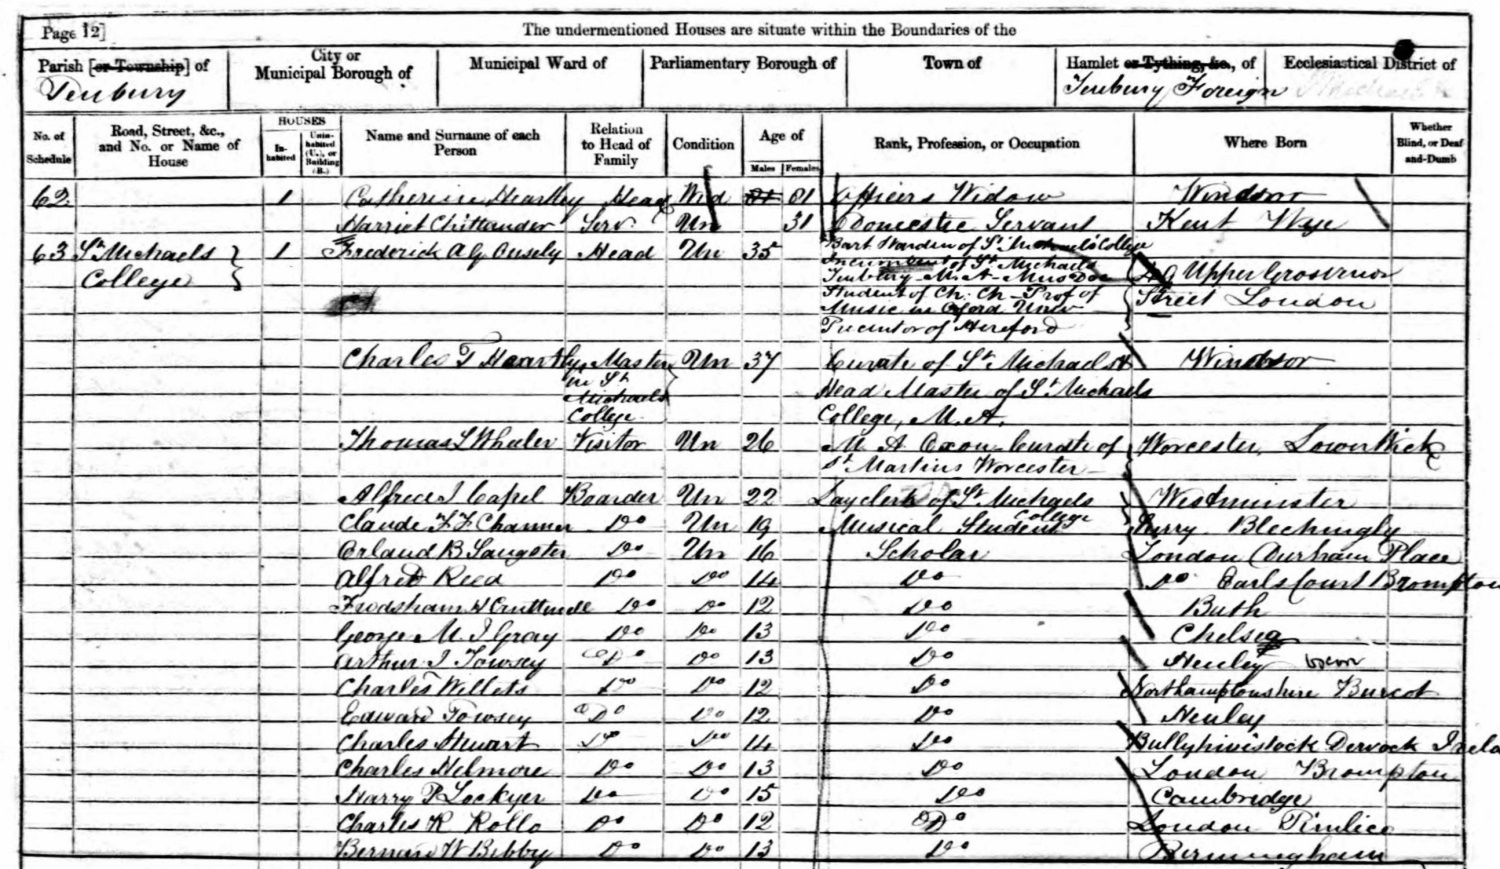 Page 12]
The undermentioned Houses are situate within the Boundaries of the
Parish [or Township] of
Tenbury
City or Municipal Borough of
Municipal Ward of
Parliamentary Borough of
Town of
Hamlet or Tything, &c., of
Tenbury Foreign
Ecclesiastical District of
No. of Schedule
Road, Street, &c., and No. or Name of House
HOUSES
In-habited
Unin-habited (U.), or Building (B.)
Name and Surname of each Person
Relation to Head of Family
Condition
Age of
Males
Females
Rank, Profession, or Occupation
Where Born
Whether Blind, or Deaf and-Dumb
62 1 Catherine Heartley Head Wid 81 Officers Widow Windsor
Harriet Chittander Serv Un 31 Domestic Servant Kent Wye
63 St Michaels College 1 Frederick A G Ousely Head Un 35 Bart Warden of St Michaels College
Incumbent of St Michaels
Tenbury M.A. Mus Doc
Student of Ch. Ch. Prof of
Music in Oxford Univ
Precentor of Hereford
Upper Grosvenor
Street London
Charles T Heartley Master in St Michaels College Un 37 Curate of St Michael &
Head Master of St Michaels
College, M.A.
Windsor
Thomas L Whaler Visitor Un 26 M A Oxon Curate of
St Martins Worcester
Worcester, Lower Wick
Alfred J Capel Boarder Un 22 Layclerk of St Michaels College Westminster
Claude F F Channer Do Un 19 Musical Student Surry Blechingly
Orland B Sangster Do Un 16 Scholar London Durham Place
Alfred Reed Do Do 14 Do Do Earls Court Brompton
Frodsham H Do Do 12 Do Bath
George M J Gray Do Do 13 Do Chelsea
Arthur J Towsey Do Do 13 Do Henley
Charles Willets Do Do 12 Do Northamptonshire Burcot
Edward Towsey Do Do 12 Do Henley
Charles Stewart Do Do 14 Do Dervock
Charles Helmore Do Do 13 Do London Brompton
Harry P Lockyer Do Do 15 Do Cambridge
Charles R Rollo Do Do 12 Do London Pimlico
Bernard W Bibby Do Do 13 Do Birmingham